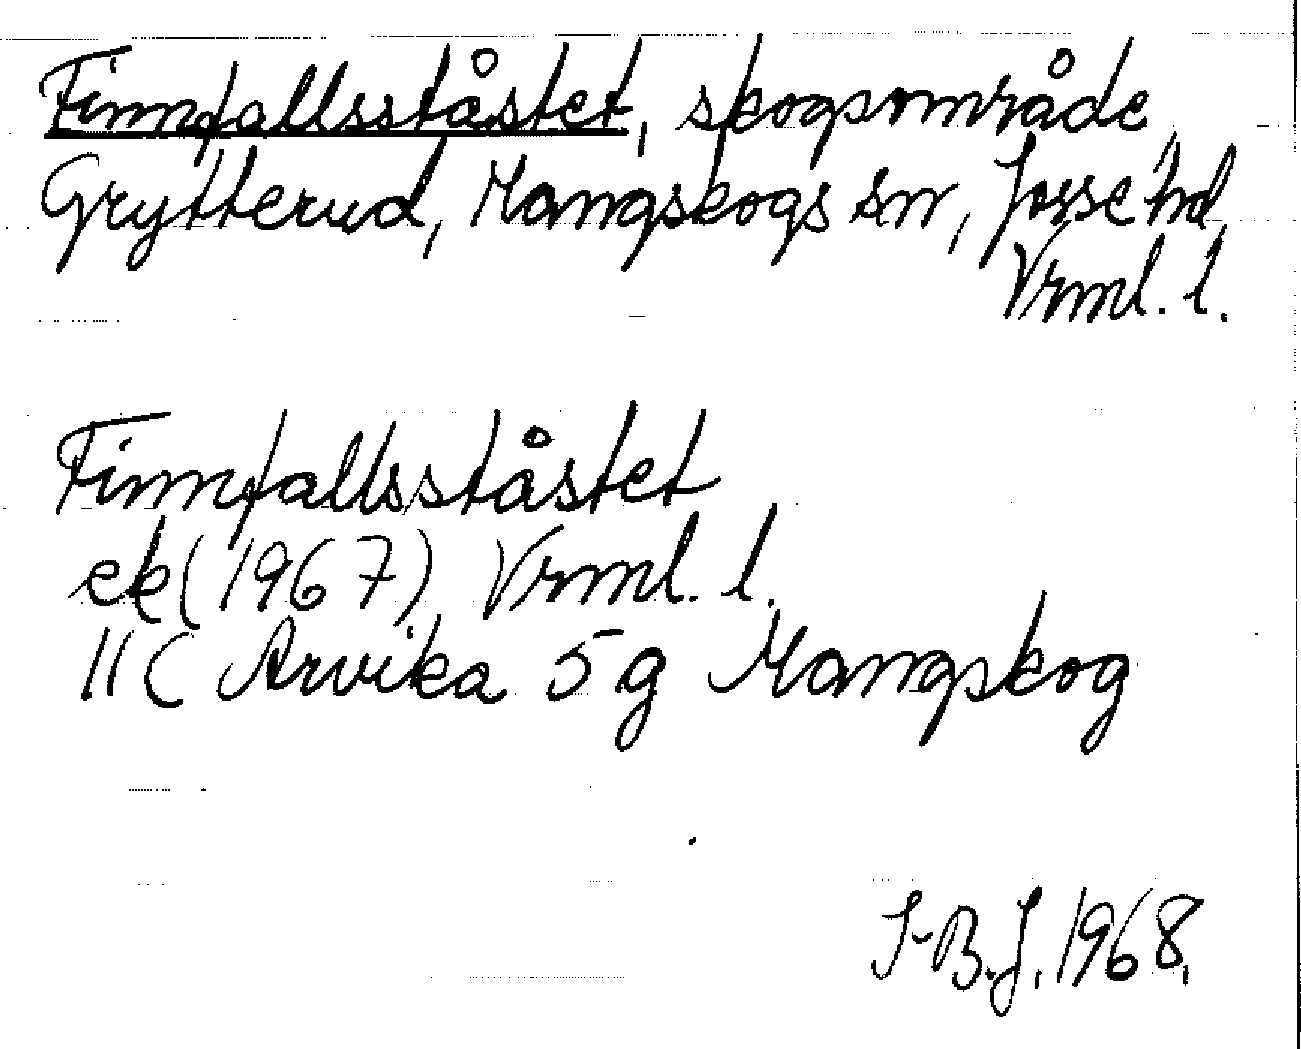 Finnfallsståstet, skogsområde,
Grytterud, Mangskogs sn, Jösse hd,
Vrml. l.
Finnfallsståstet
ek (1967) Vrml. l.
11C Arvika 5g Mangskog
I-B.J. 1968.